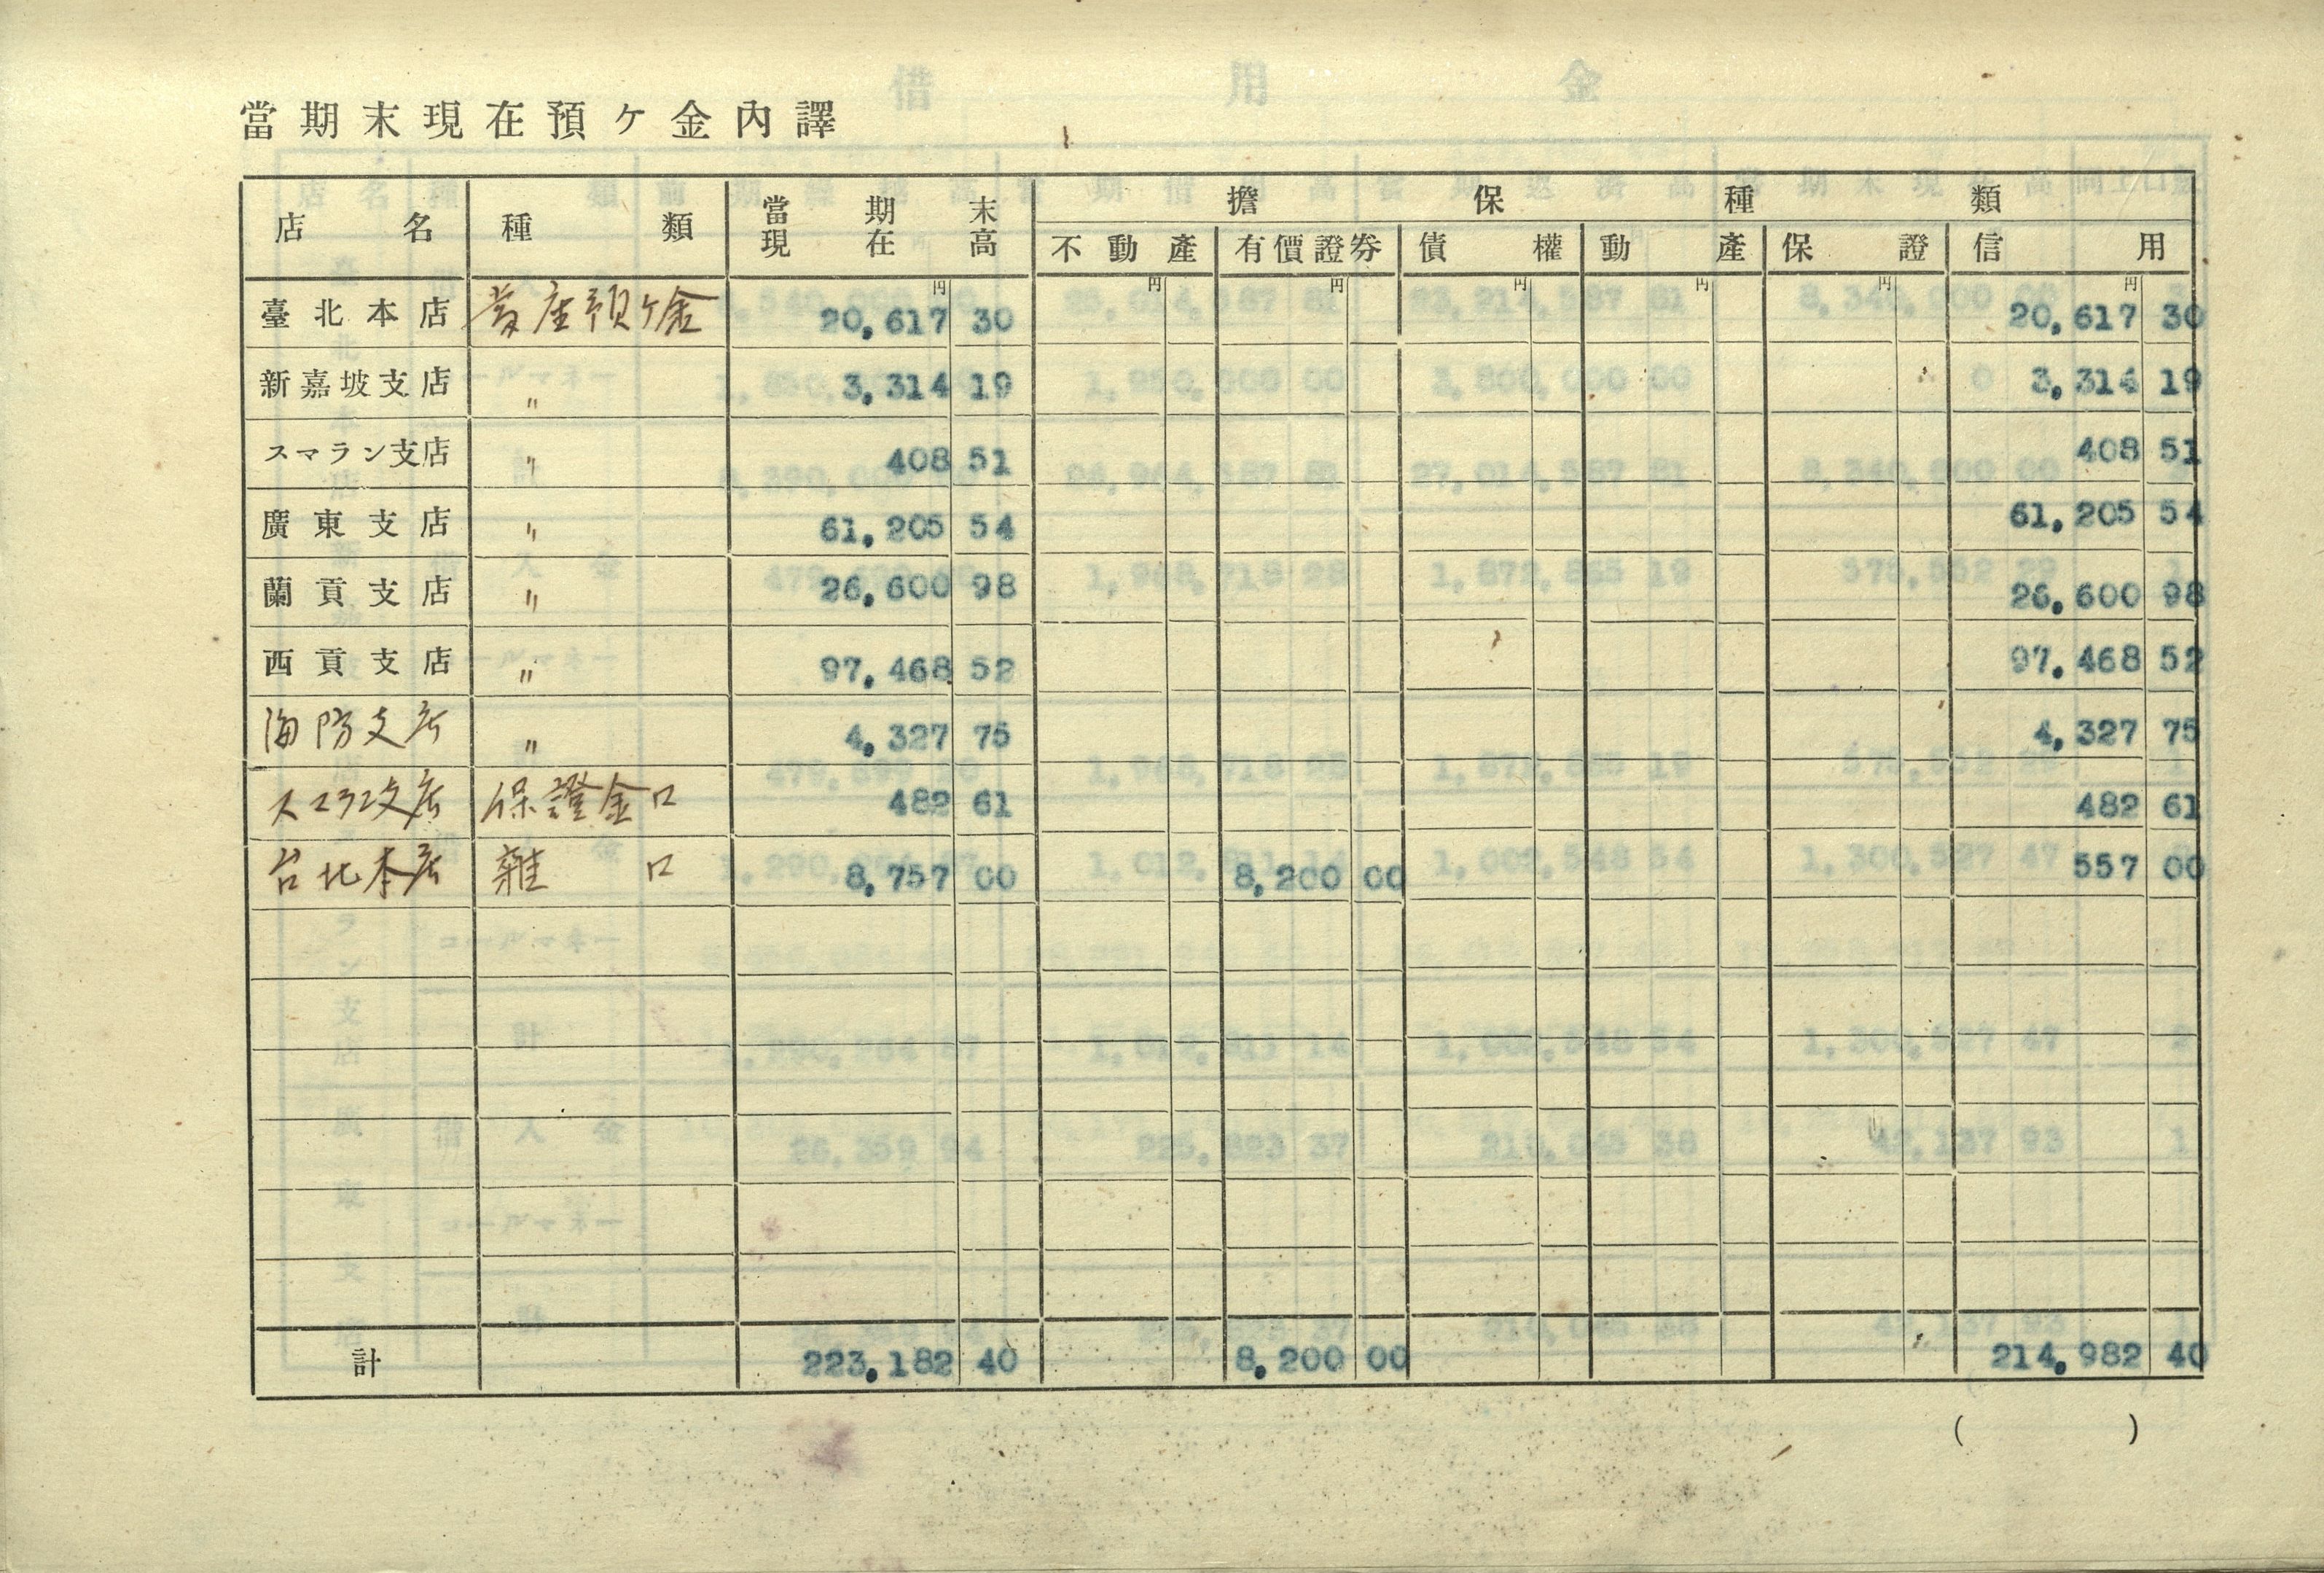 當期末現在預ケ金內譯
店名 種類 當期末現在高 擔保種類
不動產 有價證券 債權 動產 保證 信用
円 円 円 円 円 円 円
臺北本店 當座預ケ金 20,617 30 20,617 30
新嘉坡支店 〃 3,314 19 3,314 19
スマラン支店 〃 408 51 408 51
廣東支店 〃 61,205 54 61,205 54
蘭貢支店 〃 26,600 98 26,600 98
西貢支店 〃 97,468 52 97,468 52
海防支店 〃 4,327 75 4,327 75
スマラン支店 保證金口 482 61 482 61
台北本店 雜口 8,757 00 8,200 00 557 00
計 223,182 40 8,200 00 214,982 40
( )